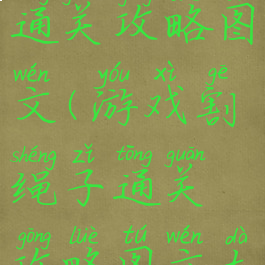 通关攻略图
wén yóu xì ge
文(游戏割
shéng zǐ tōng guān
绳子通关
gōng lüè tú wén dà
攻略图文大